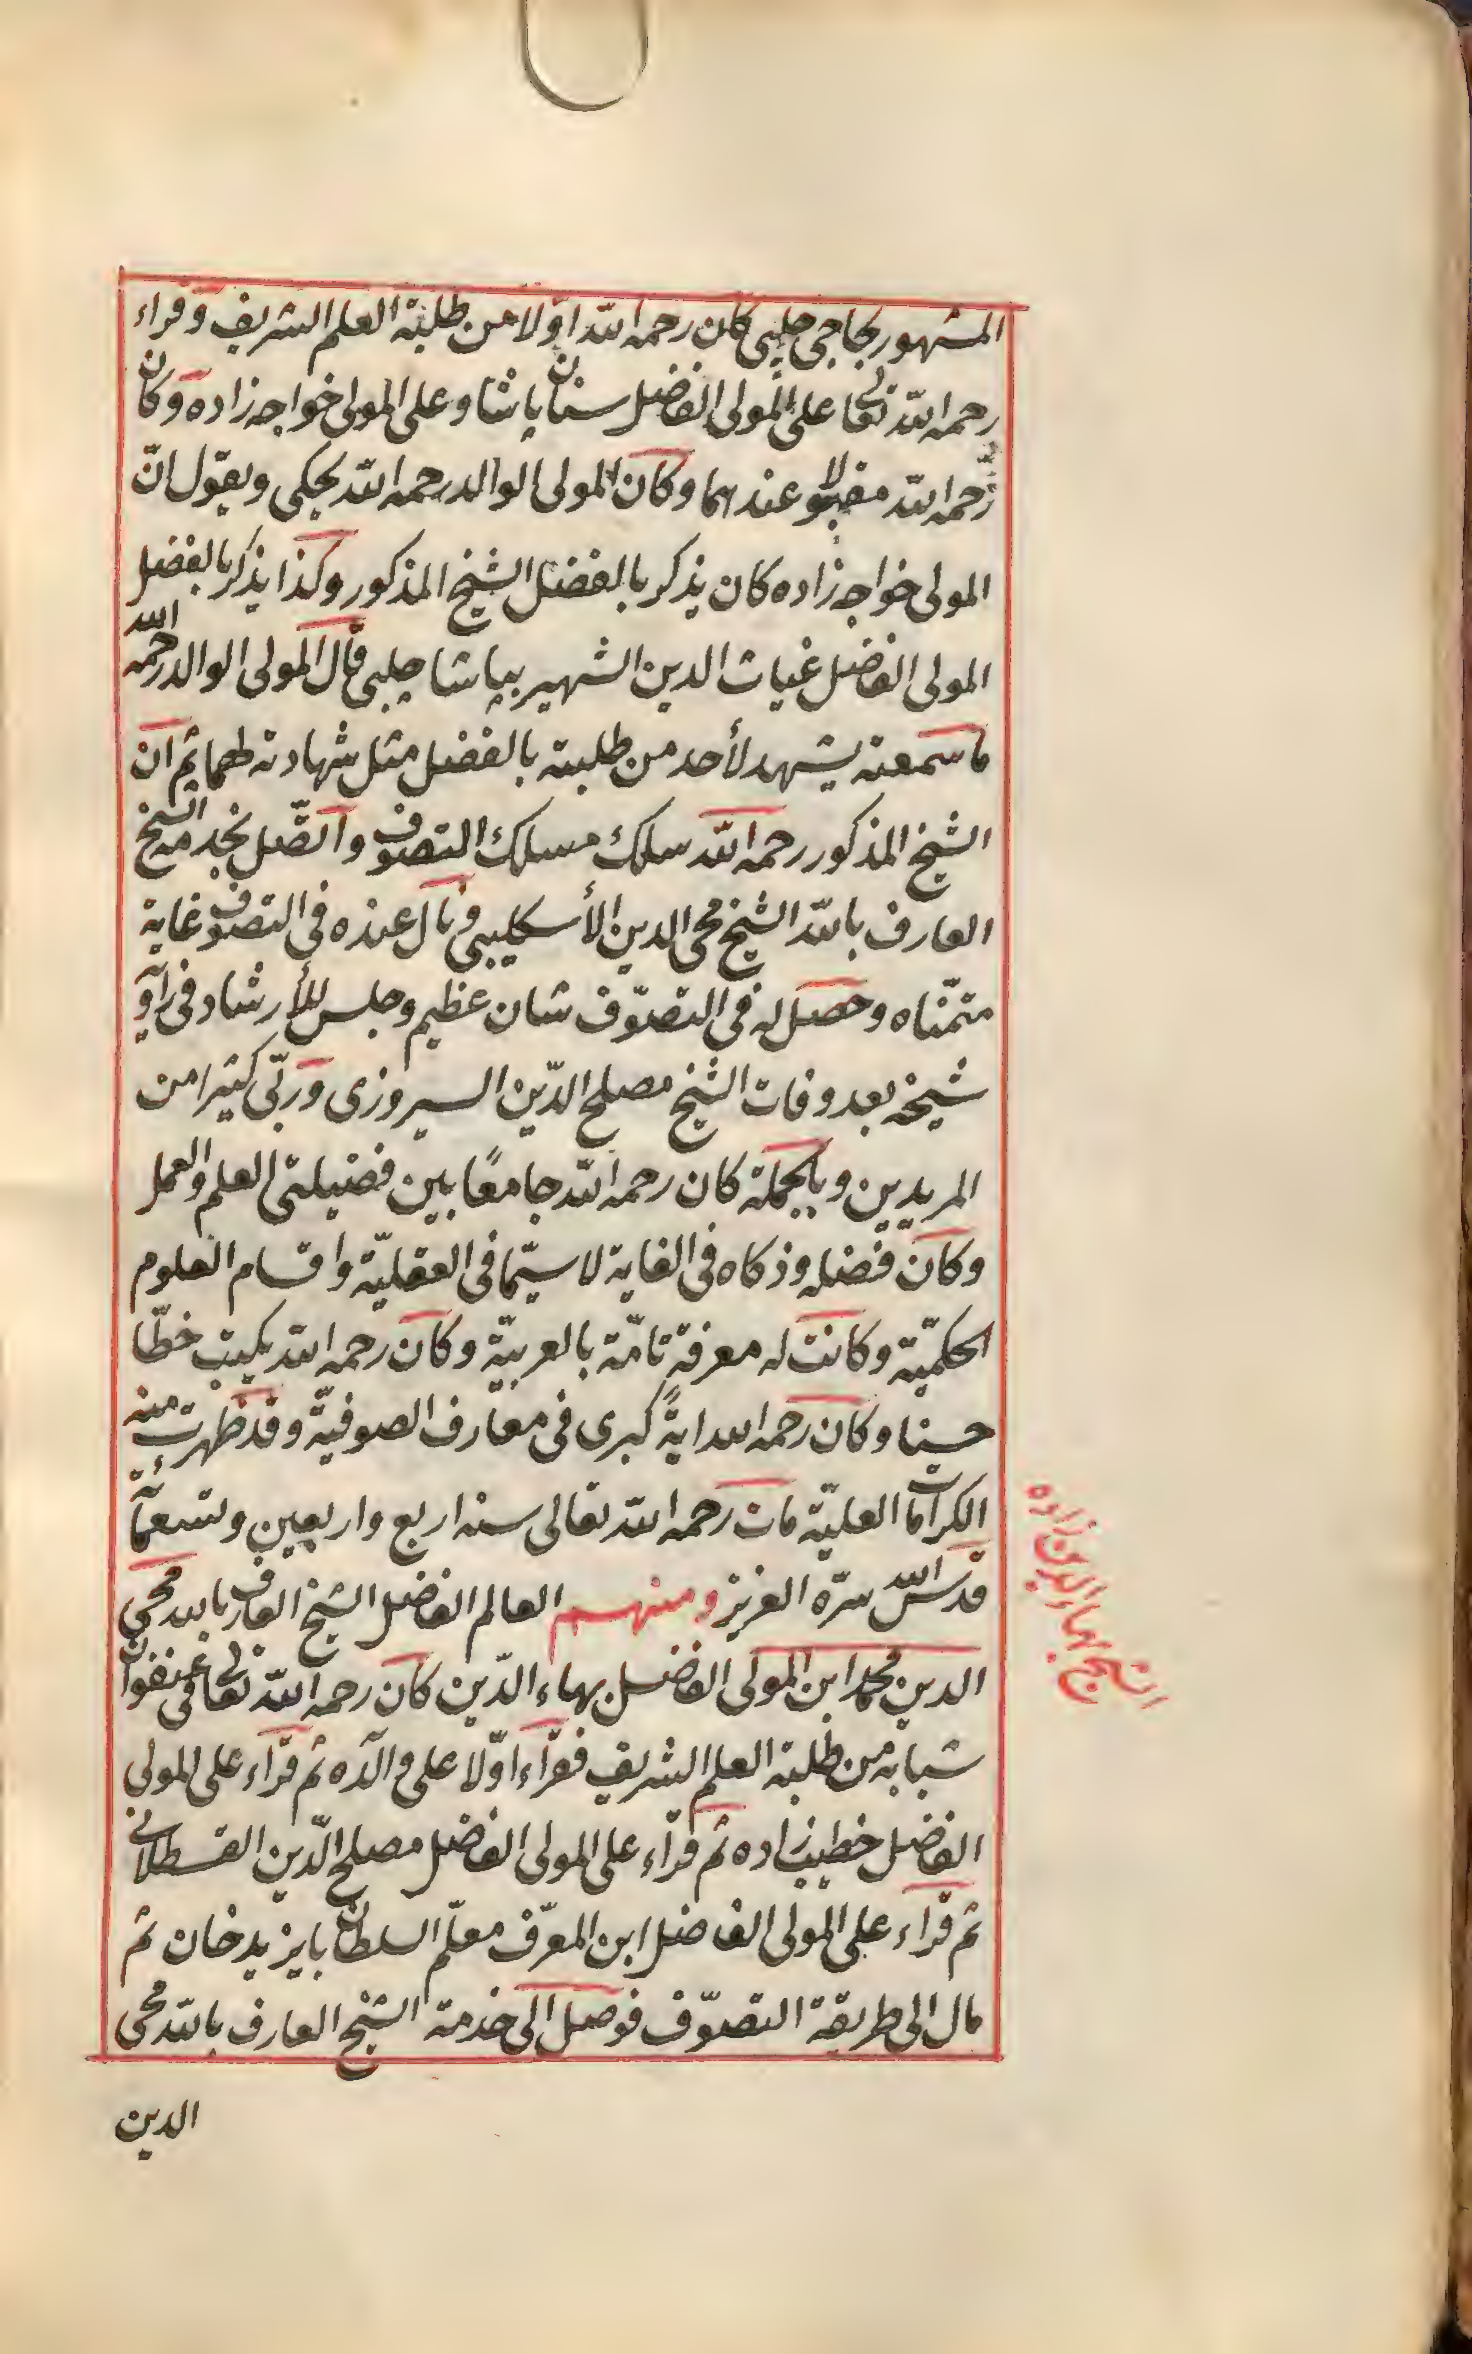 المشهور بحاجى چلبى كان رحمه الله اوّلا من طلبة العلم الشريف وقراء
رحمه الله تعالى على المولى الفاضل سنان پاشا وعلى المولى خواجه زاده وكان
رحمه الله مقبولا عندهما وكان المولى الوالد رحمه الله يحكى ويقول انّ
المولى خواجه زاده كان يذكر بالفضل الشيخ المذكور وكذا يذكر بالفضل
المولى الفاضل غياث الدين الشهير بپاشا چلبى قال المولى الوالد رحمه الله
ما سمعته يشهد لأحد من طلبته بالفضل مثل شهادته لهما ثم ان
الشيخ المذكور رحمه الله سلك مسلك التصوف واتّصل بخدمة الشيخ
العارف بالله الشيخ محى الدين الأسكليبى ونال عنده فى التصوف غاية
متمنّاه وحصل له فى التصوّف شان عظيم وجلس للأرشاد فى زاوية
شيخه بعد وفات الشيخ مصلح الدّين السيروزى وربّى كثيرا من
المريدين وبالجملة كان رحمه الله جامعًا بين فضيلتى العلم والعمل
وكان فضله وذكاه فى الغاية لا سيّما فى العقليّة واقسام العلوم
الحكميّة وكانت له معرفة تامّة بالعربيّة وكان رحمه الله يكتب خطّا
حسنا وكان رحمه الله ايةً كبرى فى معارف الصوفيّة وقد ظهرت منه
الكرامات العليّة مات رحمه الله تعالى سنه اربع واربعين وتسعمائة
قدّس الله سرّه العزيز ومنهم العالم الفاضل الشيخ العارف بالله محى
الدين محمد ابن المولى الفاضل بهاء الدّين كان رحمه الله تعالى فى عنفوان
شبابه من طلبة العلم الشريف فقراء اوّلا على والده ثم قراء على المولى
الفاضل خطيب زاده ثم قراء على المولى الفاضل مصلح الدّين القسطلانى
ثم قراء على المولى الفاضل ابن المعرّف معلّم السلطان بايزيد خان ثم
مال الى طريقة التصوّف فوصل الى خدمة الشيخ العارف بالله محى
الدين
الشيخ بهاء الدين زاده